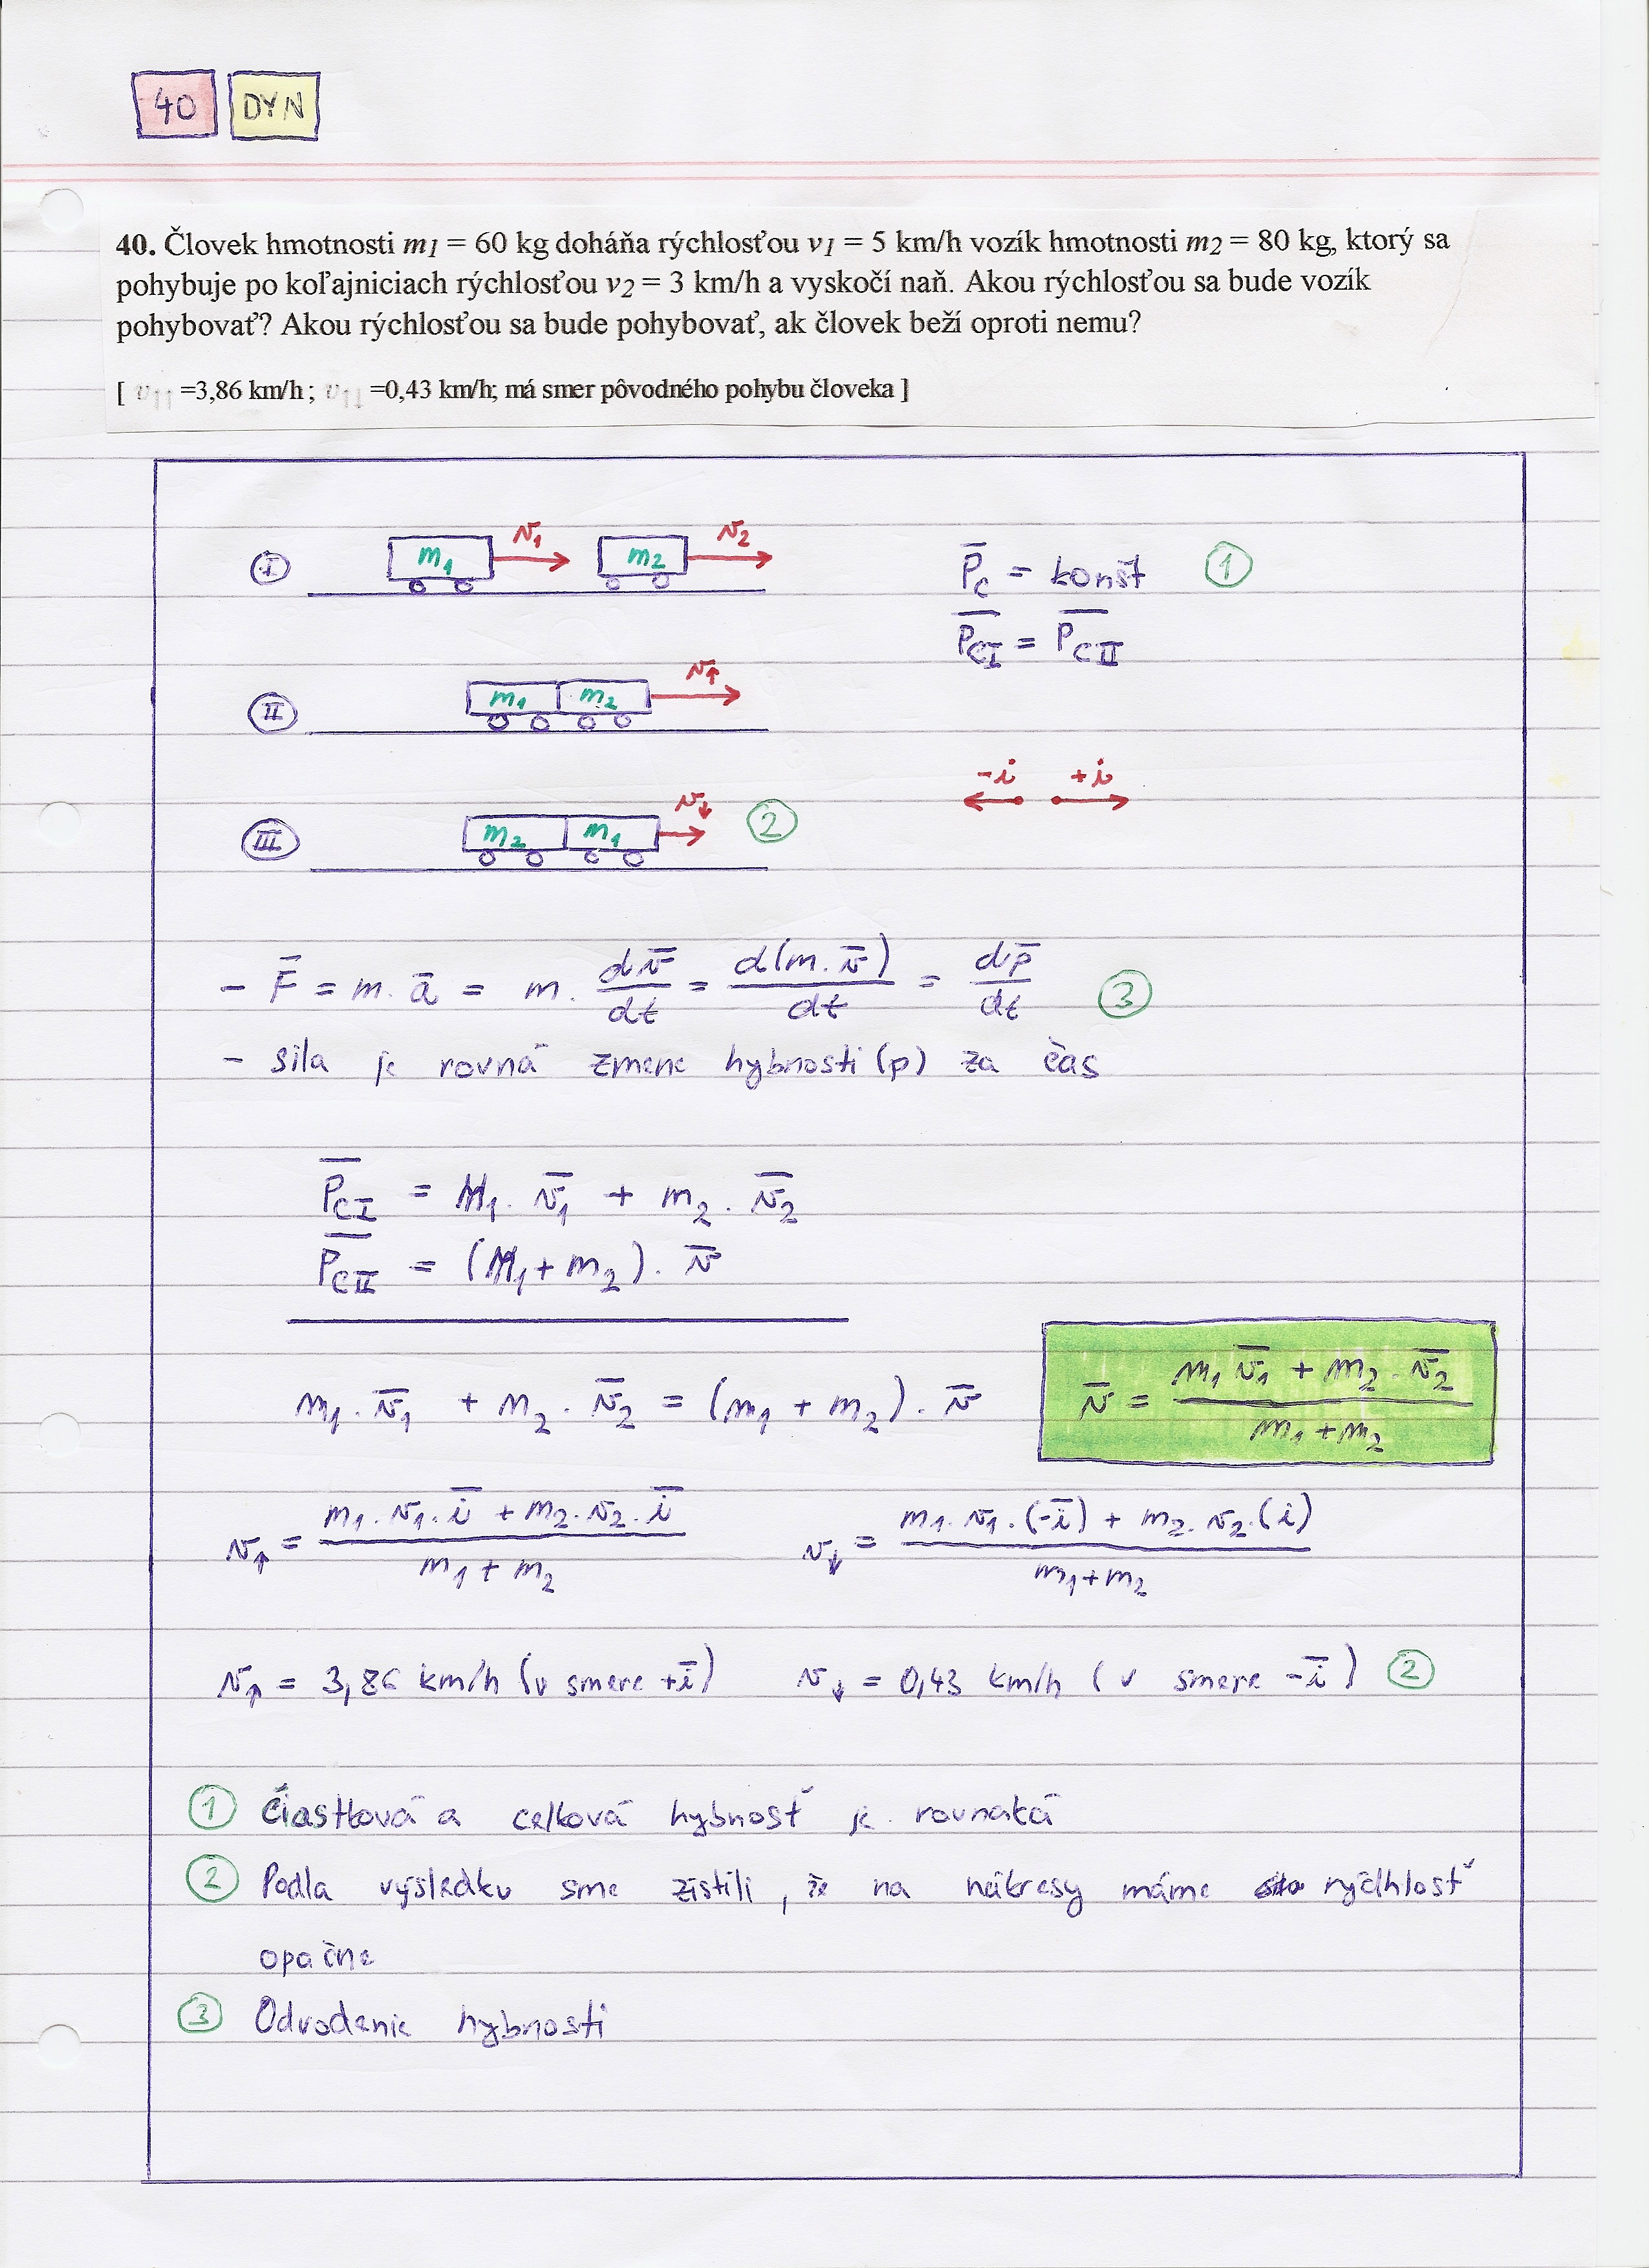 40 DYN
40. Človek hmotnosti m1 = 60 kg doháňa rýchlosťou v1 = 5 km/h vozík hmotnosti m2 = 80 kg, ktorý sa
pohybuje po koľajniciach rýchlosťou v2 = 3 km/h a vyskočí naň. Akou rýchlosťou sa bude vozík
pohybovať? Akou rýchlosťou sa bude pohybovať, ak človek beží oproti nemu?
[ v↑↑ =3,86 km/h ; v↑↓ =0,43 km/h; má smer pôvodného pohybu človeka ]
I m₁ v₁ m₂ v₂ p̄c = konšt 1
p̄cI = p̄cII
II m₁ m₂ v↑
-i +i
III m₂ m₁ v↓ 2
- F̄ = m. ā = m. dv̄/dt = d(m. v̄)/dt = dp̄/dt 3
- sila je rovná zmene hybnosti (p) za čas
p̄cI = m₁. v̄₁ + m₂. v̄₂
p̄cII = (m₁+m₂). v̄
m₁. v̄₁ + m₂. v̄₂ = (m₁ + m₂). v̄
v̄ = (m₁ v̄₁ + m₂. v̄₂)/(m₁+m₂)
v↑ = (m₁. v₁. ī + m₂. v₂. ī)/(m₁ + m₂) v↓ = (m₁. v₁. (-ī) + m₂. v₂. (i))/(m₁+m₂)
v↑ = 3,86 km/h (v smere +ī) v↓ = 0,43 km/h (v smere -ī) 2
1 Čiastková a celková hybnosť je rovnaká
2 Podla výsledku sme zistili, že na nákresy máme rýchlosť
opačne
3 Odvodenie hybnosti